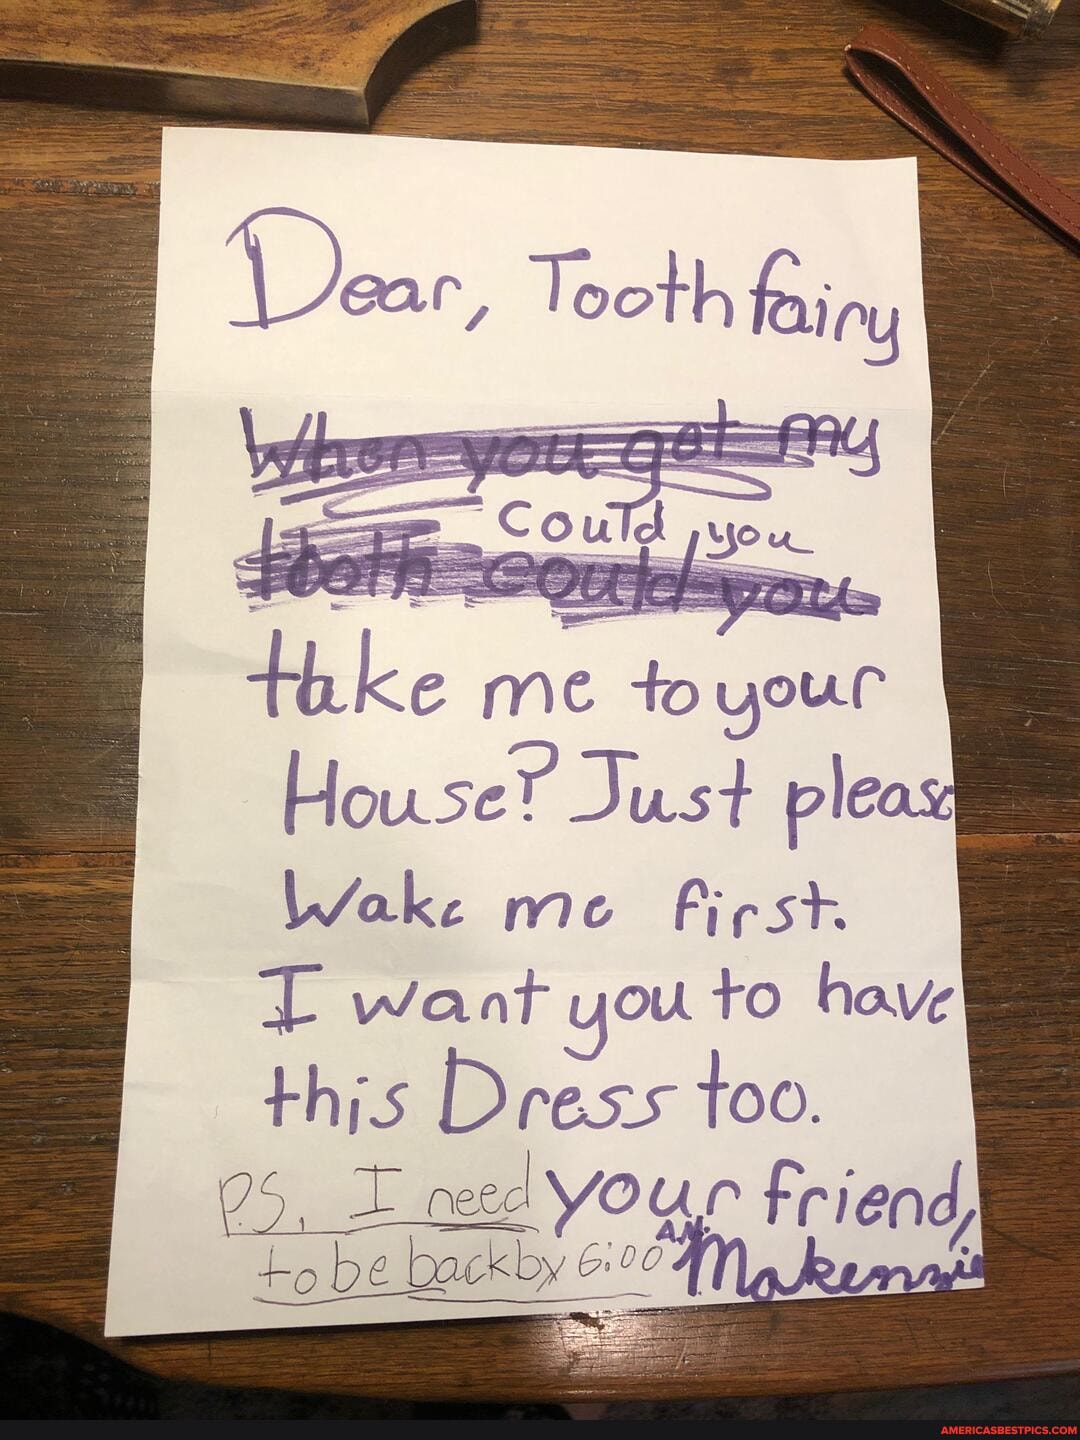 Dear, Tooth fairy
When you get my
could you
tooth could you
take me to your
House? Just please
Wake me first.
I want you to have
this Dress too.
your friend,
Makenzie
P.S. I need
to be back by 6:00 A.M.
AMERICASBESTPICS.COM